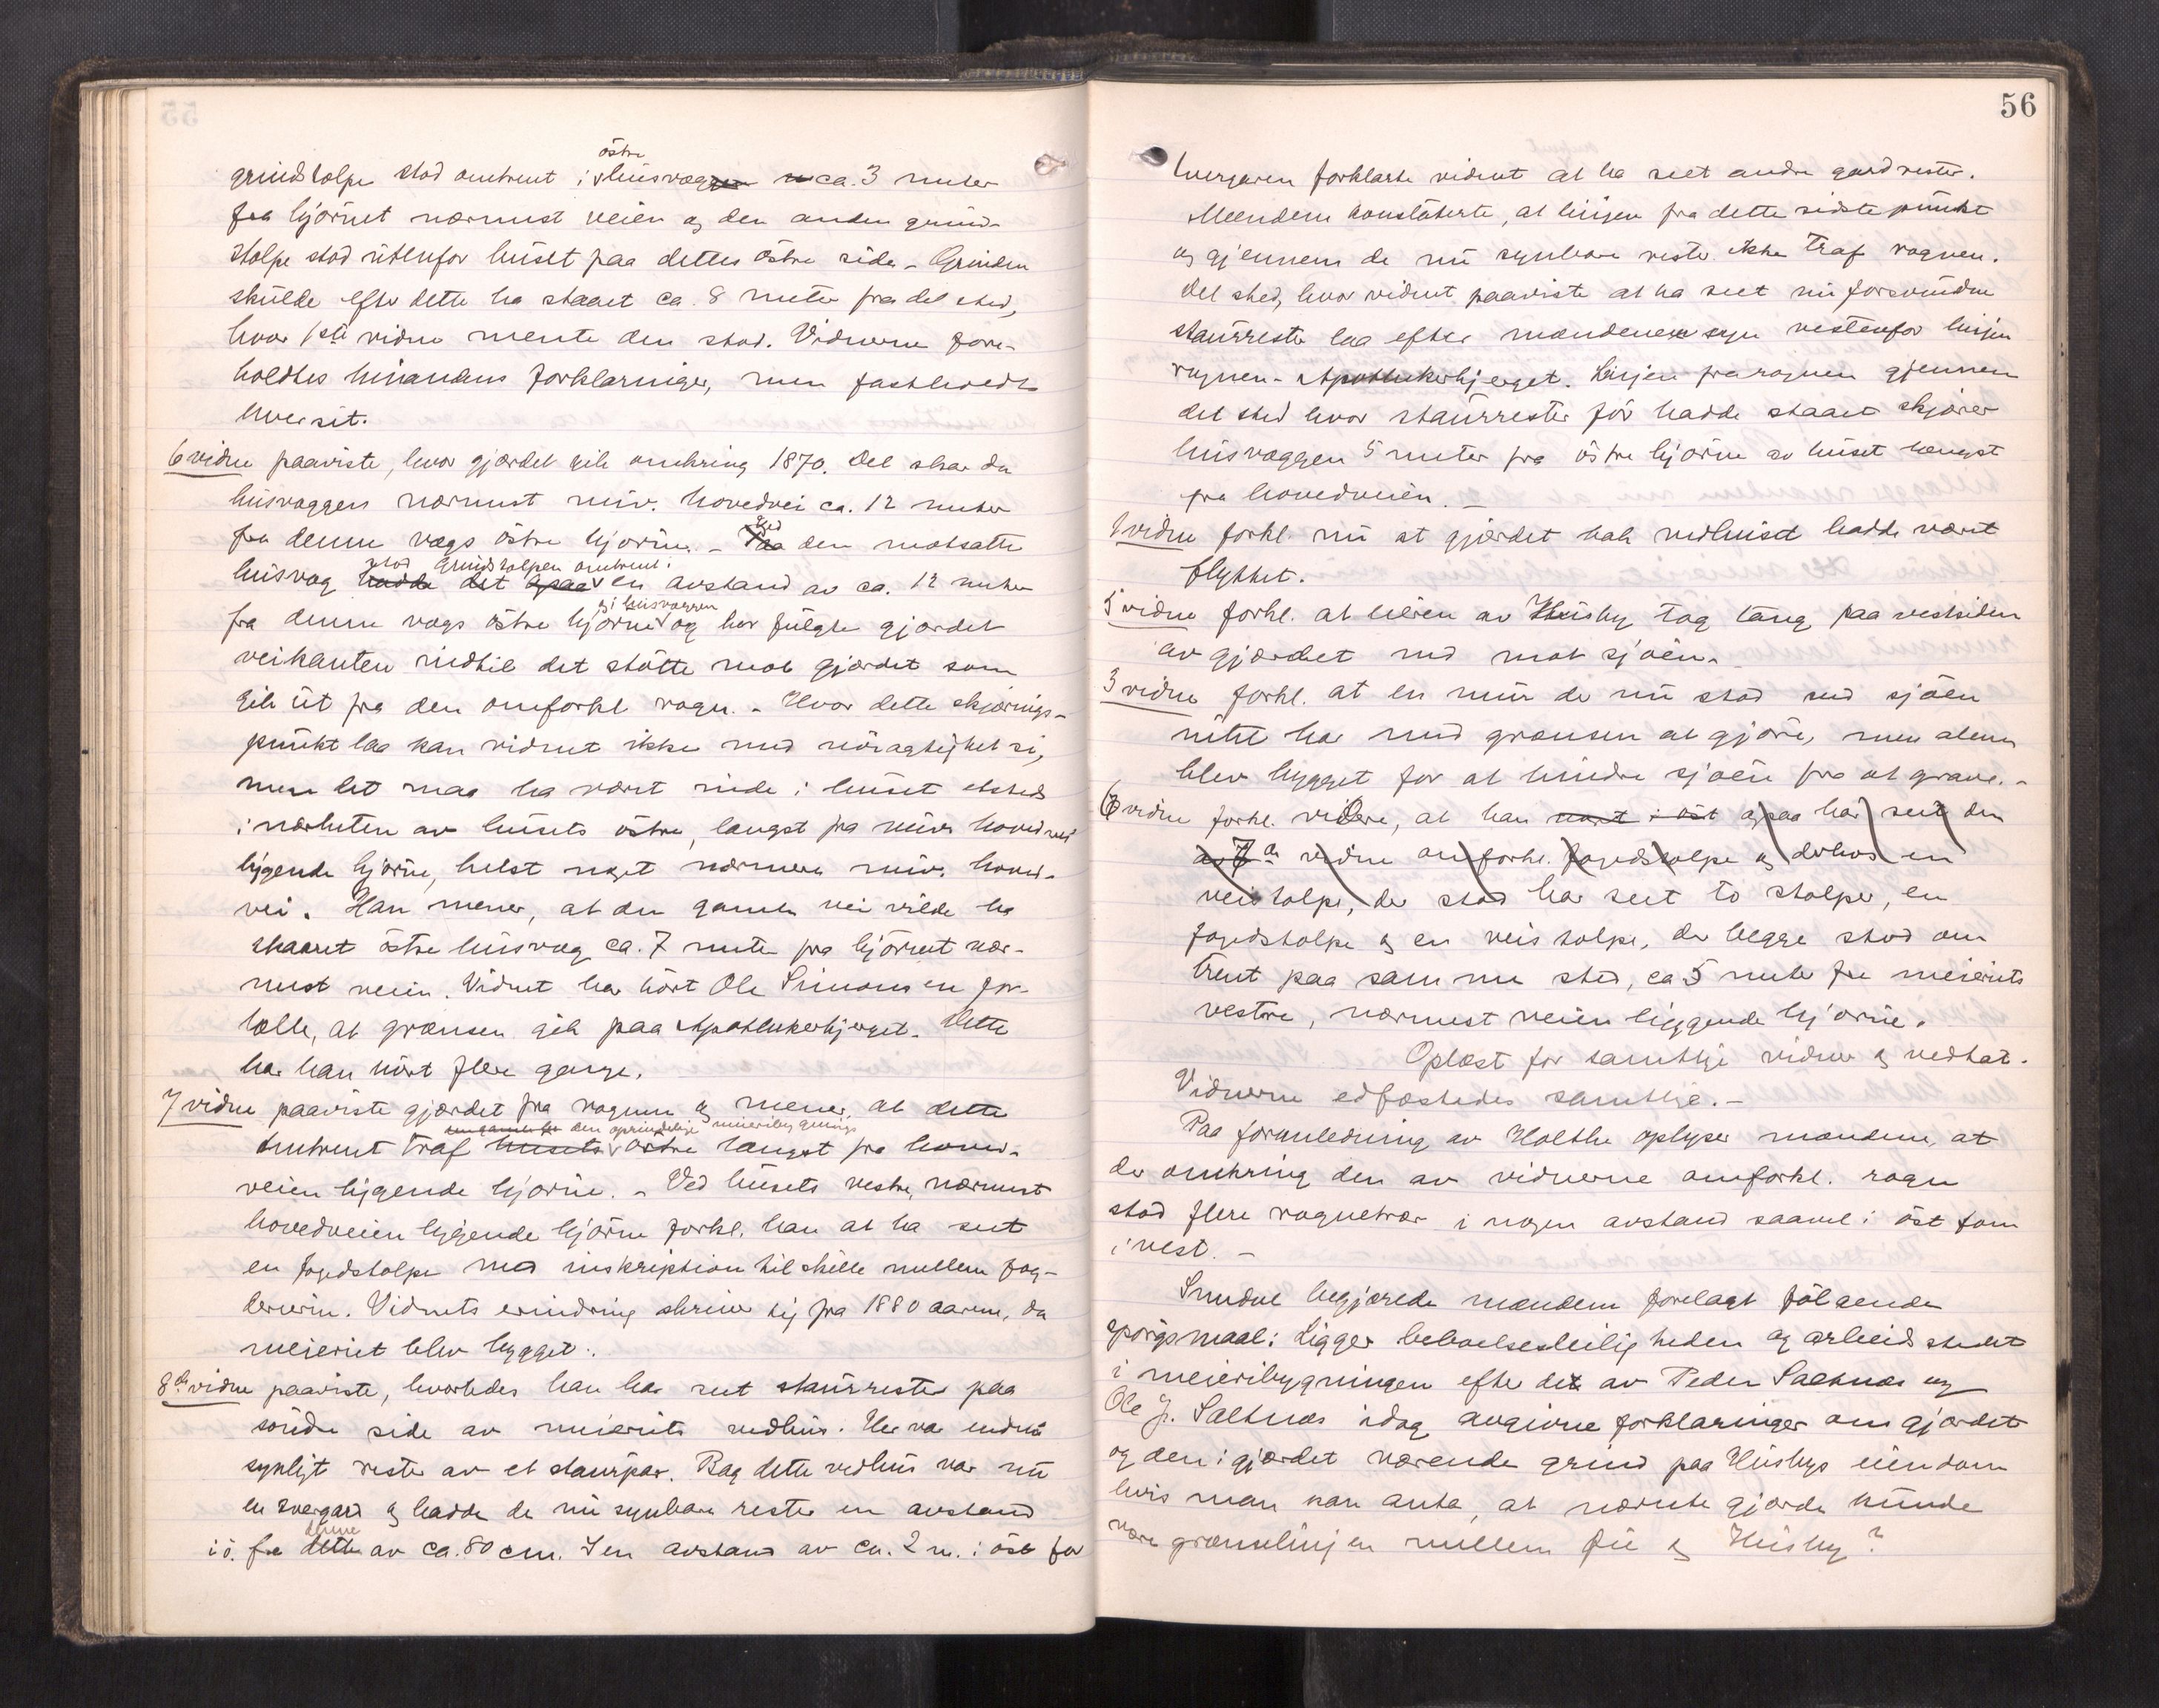 55
östre
grindstolpe stod omtrent i husvæggen ca. 3 meter
fra hjörnet nærmest veien og den anden grind-
stolpe stod utenfor huset paa dettes östre side - Grinden
skulde efter dette ha staaet ca. 8 meter fra det sted,
hvor 1ste vidne mente den stod. Vidnerne fore-
holdtes hinandens forklaringer, men fastholdt
hver sit.
6 vidne paaviste, hvor gjærdet gik omkring 1870. Det skar da
husvæggen nærmest nuv. hovedvei ca. 12 meter
fra denne vægs östre hjörne. - Ved den motsatte
stod grindstolpen omtrent i
husvæg hadde det ogsaa en avstand av ca. 12 meter
i husvæggen
fra denne vægs östre hjörne og her fulgte gjærdet
veikanten indtil det stötte mot gjærdet som
gik ut fra den omforkl rogn. - Hvor dette skjærings-
punkt laa kan vidnet ikke med nöiagtighet si,
men det maa ha været inde i huset etsteds
i nærheten av husets östre, længst fra nuv. hovedvei
liggende hjörne, helst noget nærmere nuv. hoved-
vei. Han mener, at den gamle vei vilde ha
skaaret östre husvæg ca. 7 meter fra hjörnet nær-
mest veien. Vidnet har hört Ole Simonsen for-
tælle, at grænsen gik paa Apothekerbjerget. Dette
har han hört flere gange.
7 vidne paaviste gjærdet fra rognen og mener, at dette
den oprindelige meieribygnings
omtrent traf husets östre længst fra hoved-
veien liggende hjörne. - Ved husets vestre, nærmest
hovedveien liggende hjörne forkl. han at ha seet
en fogedstolpe med inskription til skille mellem fog-
derierne. Vidnets erindring skriver sig fra 1880 aarene, da
meieriet blev bygget.
8de vidne paaviste, hvorledes han har seet staurrester paa
söndre side av meieriets vedhus. Her var endnu
synligt rester av et staurpar. Bag dette vedhus var nu
en tvergard og hadde de nu synbare rester en avstand
denne
i ö. fra dette av ca. 80 cm. I en avstand av ca. 2 m. i öst for
56
tvergaren forklarte vidnet at ha seet andre gardrester.
Mændene konstaterte, at linjen fra dette sidste punkt
og gjennem de nu synbare rester ikke traf rognen.
Det sted, hvor vidnet paaviste at ha seet nu forsvundne
staurrester laa efter mændenes syn vestenfor linjen
rognen - Apothekerbjerget. Linjen fra rognen gjennem
det sted hvor staurrester för hadde staaet skjærer
husvæggen 5 meter fra östre hjörne av huset længst
fra hovedveien. -
1 vidne forkl. nu at gjærdet bak vedhuset hadde været
flyttet.
5 vidne forkl. at eieren av Husby tog tang paa vestsiden
av gjærdet ned mot sjöen.
3 vidne forkl. at en mur der nu stod ved sjöen
intet har med grænsen at gjöre, men alene
blev bygget for at hindre sjöen fra at grave. -
6 vidne forkl. videre, at han været i öst ogsaa har seet den
av 7de vidne omforkl. fogedstolpe og derhos en
veistolpe, der stod har seet to stolper, en
fogedstolpe og en veistolpe, der begge stod om
trent paa samme sted, ca 5 meter fra meieriets
vestre, nærmest veien liggende hjörne.
Oplæst for samtlige vidner og vedtat.
Vidnerne edfæstedes samtlige. -
Paa foranledning av Holthe oplyser mændene, at
der omkring den av vidnerne omforkl. rogn
stod flere rognetrær i nogen avstand saavel i öst som
i vest. -
Smedvel begjærede mændene forelagt fölgende
spörgsmaal: Ligger beboelsesleiligheden og arbeidsstedet
i meieribygningen efter det av Peder Saltnes og
Ole J. Saltnes idag avgivne forklaringer om gjærdet
og den i gjærdet værende grind paa Husbys eiendom
hvis man kan anta, at nævnte gjærde kunde
være grænselinjen mellem Bu og Husby?